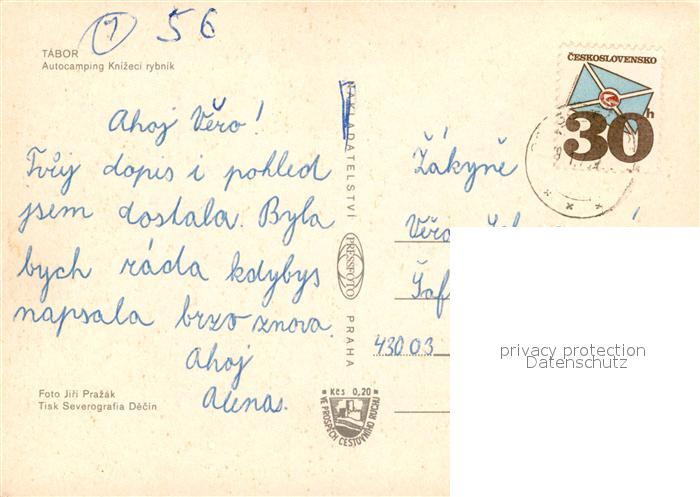 1 56
TÁBOR
Autocamping Knížecí rybník
Ahoj Věro!
Tvůj dopis i pohled
jsem dostala. Byla
bych ráda kdybys
napsala brzo znova.
Ahoj
Alena.
Foto Jiří Pražák
Tisk Severografia Děčín
NAKLADATELSTVÍ PRESSFOTO PRAHA
Kčs 0,20
VE PROSPĚCH CESTOVNÍHO RUCHU
ČESKOSLOVENSKO
30h
Žákyně
Věra
43003
privacy protection
Datenschutz